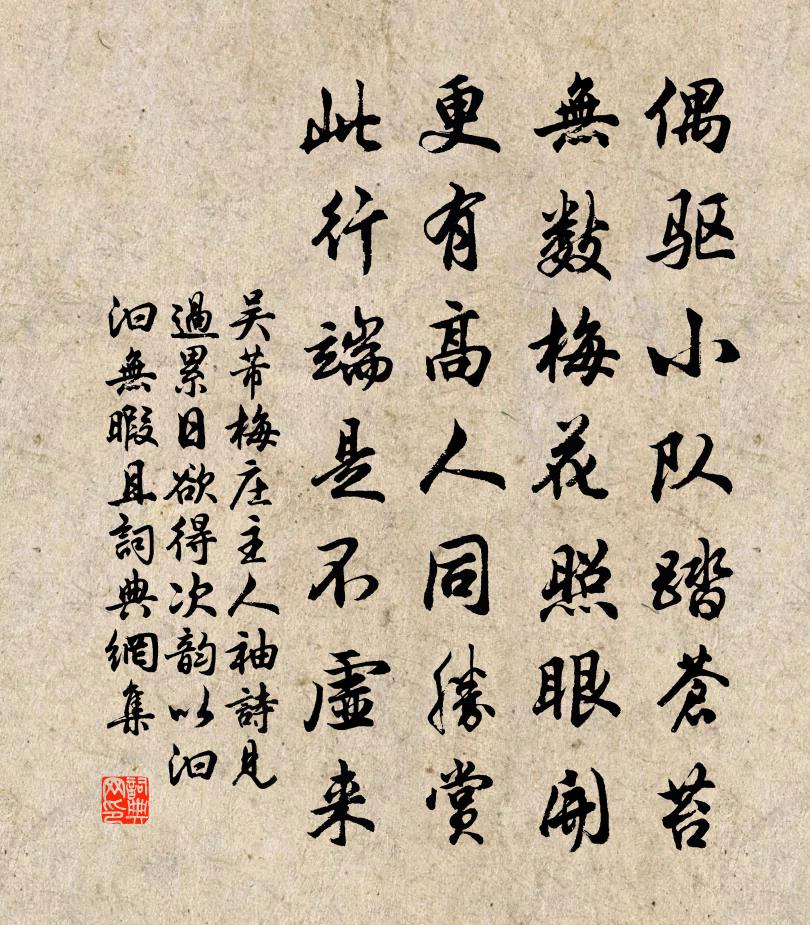 偶驱小队踏蒼苔
無数梅花照眼開
更有高人同勝賞
此行端是不虛来
吴芾梅庄主人袖詩見
過累日欲得次韵以汩
汩無暇且詞典網集
詞典网印